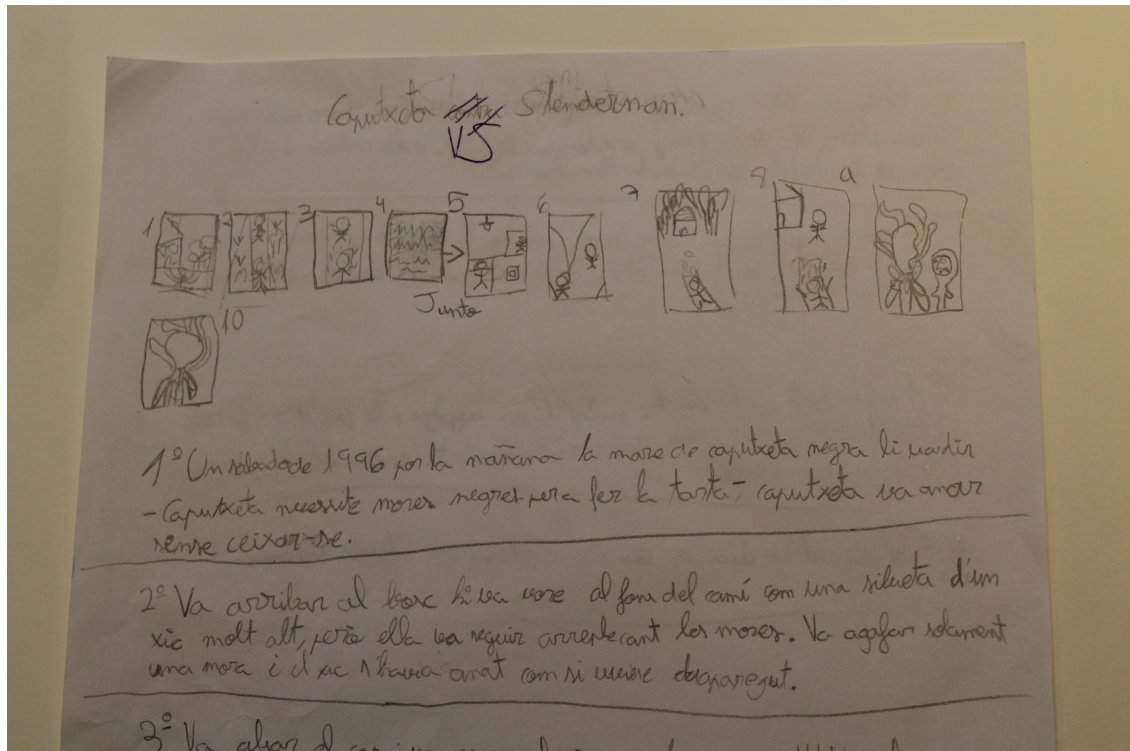 Caputxeta VS Slenderman.
1 2 3 4 5 6 7 8 9
Junto
10
1º Un sábado de 1996 por la mañana la mare de caputxeta negra li va dir
- Caputxeta necesite mores negres pera fer la tarta - caputxeta va anar
sense ceixar-se.
2º Va arribar al bosc hi va vore al fons del camí com una silueta d'un
xic molt alt, però ella va seguir arreplecant les mores. Va agafar solament
una mora i el xic s'havia anat com si desaparegut.
3º Va